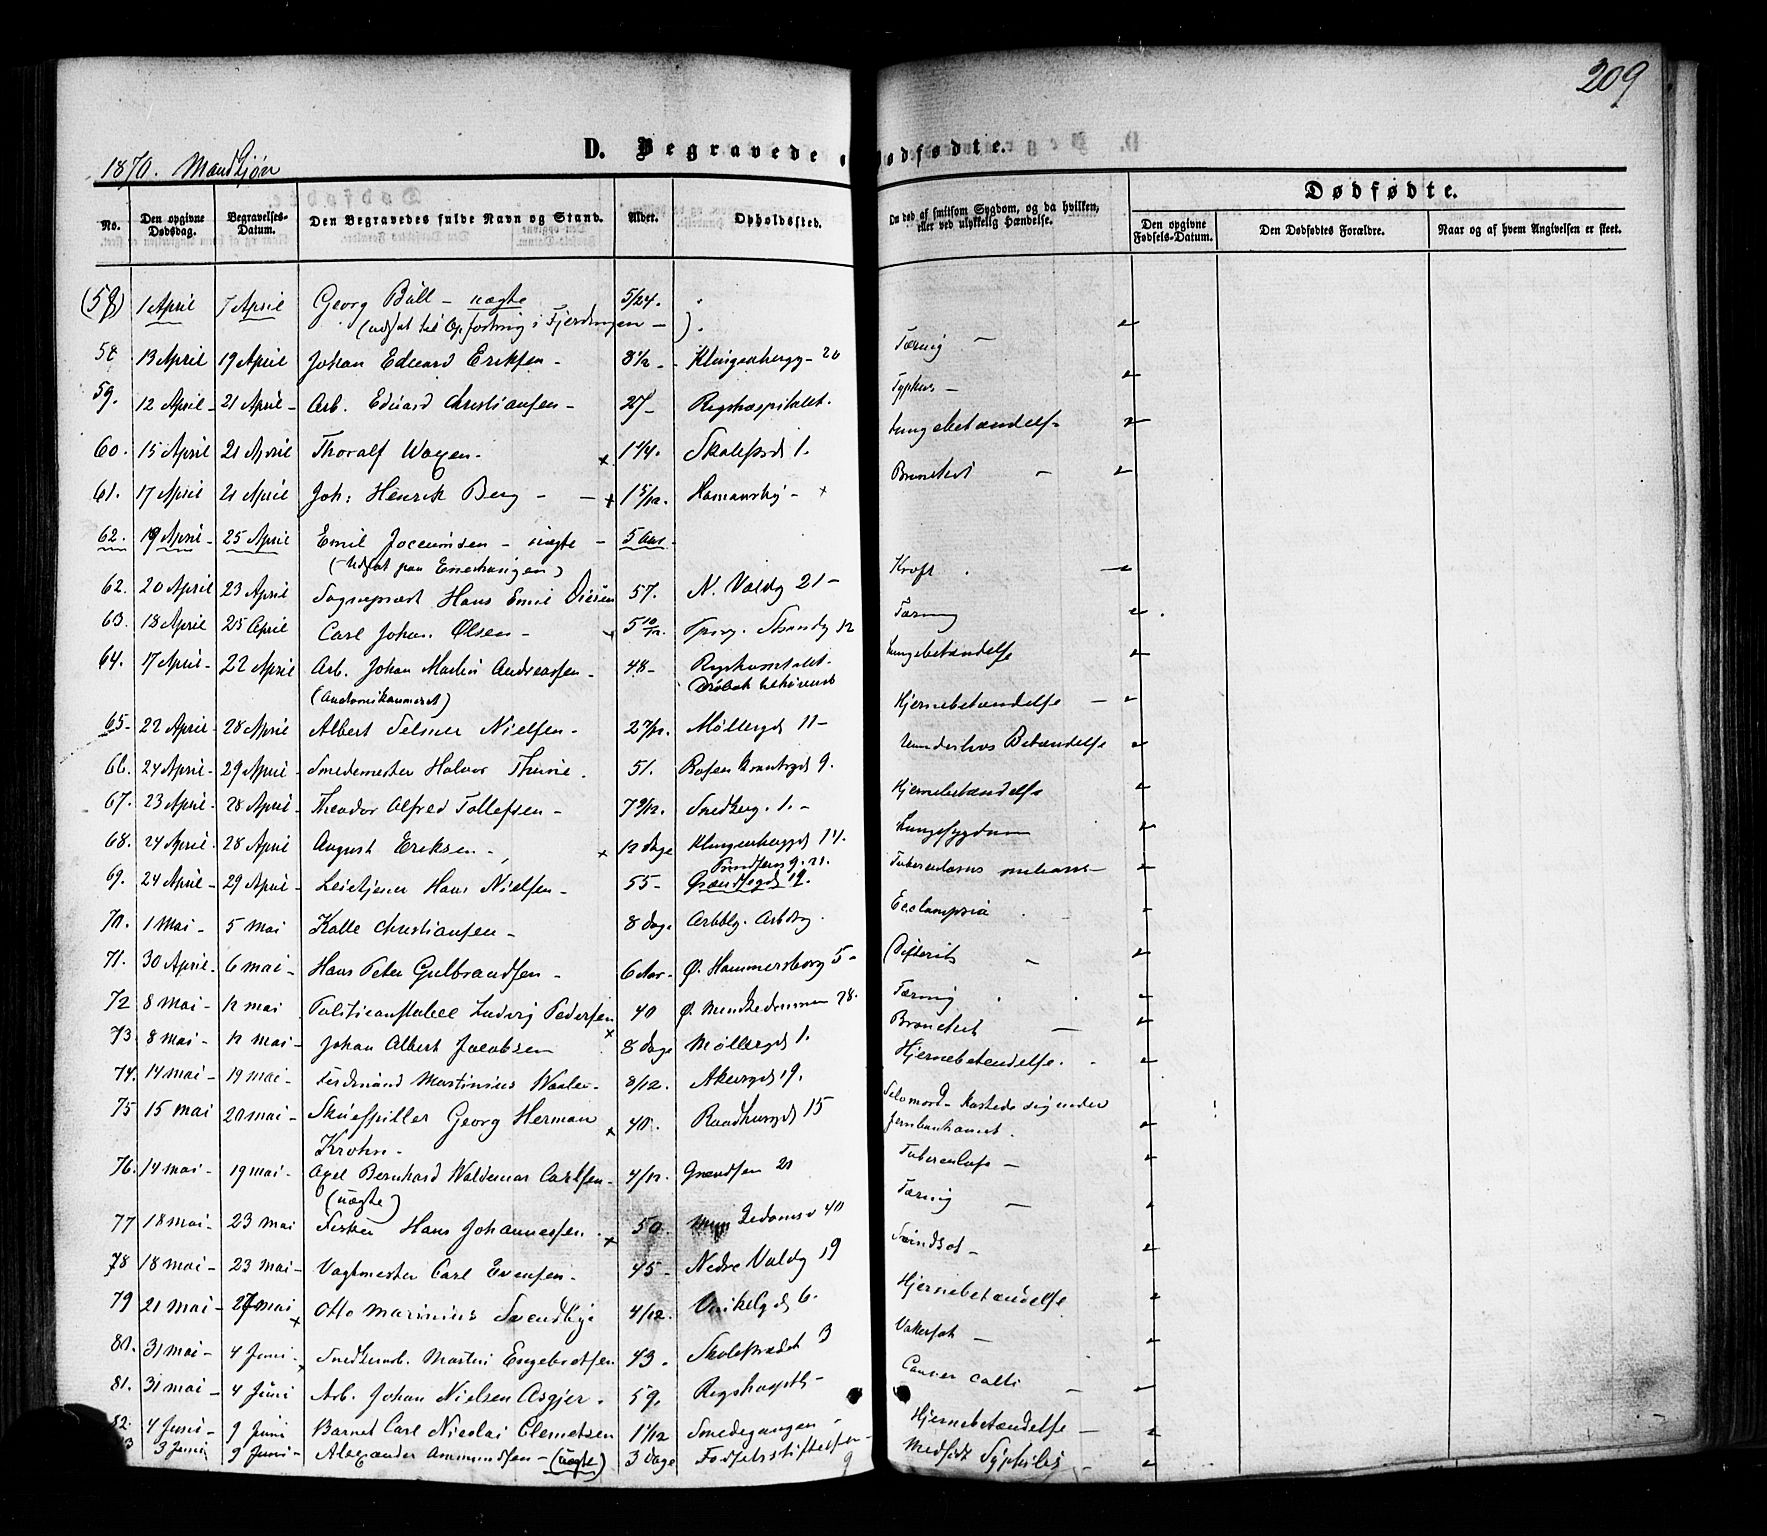 209
D. Begravede o
Dødfødte.
1870. Mandkjøn
Dødfødte.
No.
Den opgivne Dødsdag.
Begravelses-Datum.
Den Begravedes fulde Navn og Stand.
Alder.
Opholdssted.
Om død af smitsom Sygdom, og da hvilken, eller ved ulykkelig Hændelse.
Den opgivne Fødsels-Datum.
Den Dødfødtes Forældre.
Naar og af hvem Angivelsen er skeet.
1 April 7 April Georg Büll - uægte 5/24.
(udsat til Opfostring i Fjerdingen -).
58 13 April 19 April Johan Edvard Eriksen - 8 1/2 - Klingenbergg - 20 Tæring -
59. 12 April - 21 April - Arb. Eduard Christiansen - 27 - Rigshospitalet. Typhus -
60. 15 April 21 April Thoralf Waagen - 1 1/4. Skolestrd 1. Lungebetændelse
61. 17 April 21 April Joh: Henrik Berg - 1 5/12. Hamansby - Bronchit -
62. 19 April - 25 April Emil Jocumsen - uægte - 5 Aar -
(Udsat paa Enerhaugen)
62. 20 April 23 April Sognepræst Hans Emil 57. N. Voldg 21 - Kræft.
63. 18 April 25 April Carl Johan Olsen - 5 10/12. Strandg 12 Tæring
64. 17 April - 22 April Arb. Johan Martin Andreassen - 48 - Rigshospitalet. Lungebetændelse
(Anatomikammeret) Drøbak
65 - 22 April - 28 April Albert Selmer Nielsen - 2 7/12. Møllergd 11 - Hjernebetændelse -
66. 24 April - 29 April - Smedemester Halvor Thune. 51. Rosenkrantzgd 9. Underlivs Betændelse
67. 23 April - 28 April - Theodor Alfred Tollefsen - 7 9/12. Smedberg. 1. - Hjernebetændelse
68. 24 April - 28 April August Eriksen - 12 dage Klingenberggd 14. Lungesygdom
69. 24 April - 29 April - Hans Nielsen - 55 - Grændsegd 19. Tuberculosis
70. 1 Mai - 5 Mai Kalle Christiansen - 8 dage Arbbg. Ecclampsia
71. 30 April - 6 Mai - Hans Peter Gulbrandsen - 6 Aar - Ø. Hammersborg 5 - Difterit -
72 8 Mai - 12 Mai Politieconstabel Ludvig Pedersen 40 Ø. 28. Tæring
73. 8 Mai - 12 Mai - Johan Albert Jacobsen 8 dage Møllergd 1. Bronchit -
74. 14 Mai - 19 Mai - Ferdinand Martinius Waaler - 8/12. Akersgd 19. Hjernebetændelse.
75 15 Mai 20 Mai - Skuespiller Georg Herman 40. Raadhusgd 15 Selvmord - kastede sig under
Krohn - Jernbanetoget.
76. 14 Mai - 19 Mai - Axel Bernhard Waldemar Carlsen - 4/12. Grændsen 21 Tuberculose -
(uægte)
77 18 Mai - 23 Mai Fisker Hans Johannessen. 50. 40 Tæring -
78 18 Mai - 23 Mai - Vagtmester Carl Evensen - 45 - Nedre Voldg 19 Svindsot -
79 21 Mai - 27 Mai Otto Marinius Svendby 4/12. Vinkelgd 6. Hjernebetændelse
80. 31 Mai - 4 Juni. Snedkerarb. Martin Engebretsen 43. Skolestrædet 3 Vatersot -
81. 31 Mai - 4 Juni Arb. Johan Nielsen Asgjer. 59. Rigshospth - Cancer Colli -
82. 4 Juni - 9 Juni Barnet Carl Nicolai Clemetsen 1 1/12 Smedegangen - Hjernebetændelse -
3 Juni 9 Juni - Alexander Ammundsen - (uægte) 3 dage Fødselsstiftelsen - Medfødt Syphilis -